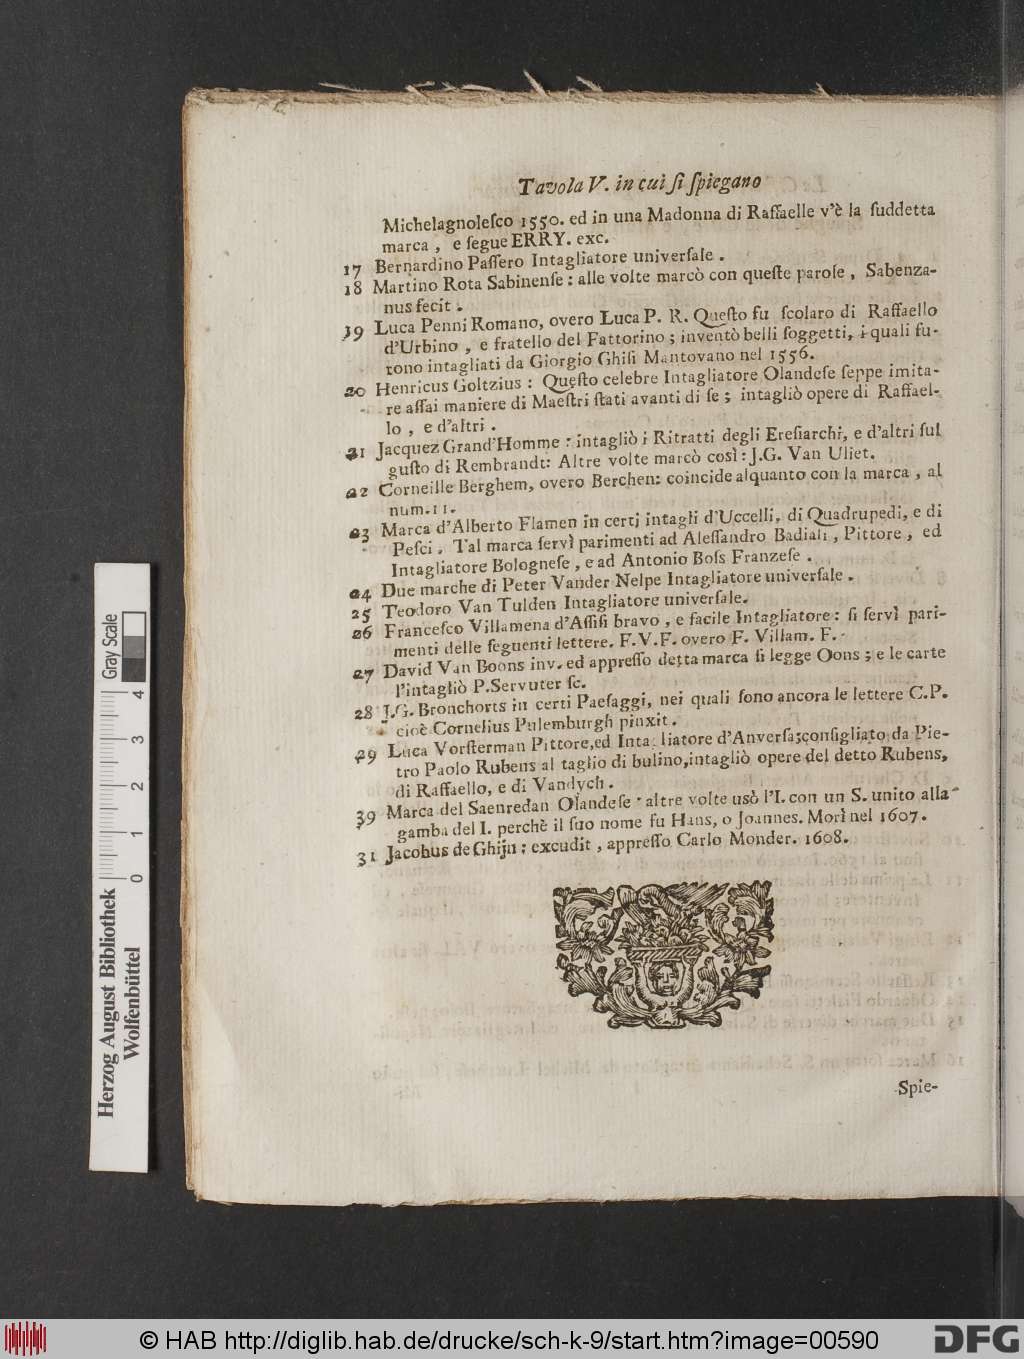 Tavola V. in cui ſi ſpiegano
Michelagnoleſco 1550. ed in una Madonna di Raffaelle v'è la ſuddetta
marca, e ſegue ERRY. exc.
17 Bernardino Paſſero Intagliatore univerſale.
18 Martino Rota Sabinenſe: alle volte marcò con queſte parole, Sabenza-
nus fecit.
19 Luca Penni Romano, overo Luca P. R. Queſto fu ſcolaro di Raffaello
d'Urbino, e fratello del Fattorino; inventò belli ſoggetti, i quali fu-
rono intagliati da Giorgio Ghiſi Mantovano nel 1556.
20 Henricus Goltzius: Queſto celebre Intagliatore Olandeſe ſeppe imita-
re aſſai maniere di Maeſtri ſtati avanti di ſe; intagliò opere di Raffael-
lo, e d'altri.
21 Jacquez Grand'Homme: intagliò i Ritratti degli Ereſiarchi, e d'altri ſul
guſto di Rembrandt: Altre volte marcò così: J.G. Van Uliet.
22 Corneille Berghem, overo Berchen: coincide alquanto con la marca, al
num. 11.
23 Marca d'Alberto Flamen in certi intagli d'Uccelli, di Quadrupedi, e di
Peſci. Tal marca ſervì parimenti ad Aleſſandro Badiali, Pittore, ed
Intagliatore Bologneſe, e ad Antonio Boſs Franzeſe.
24 Due marche di Peter Vander Nelpe Intagliatore univerſale.
25 Teodoro Van Tulden Intagliatore univerſale.
26 Franceſco Villamena d'Aſſiſi bravo, e facile Intagliatore: ſi ſervì pari-
menti delle ſeguenti lettere. F.V.F. overo F. Villam. F.
27 David Van Boons inv. ed appreſſo detta marca ſi legge Oons; e le carte
l'intagliò P.Servuter ſc.
28 J.G. Bronchorts in certi Paeſaggi, nei quali ſono ancora le lettere C.P.
cioè Cornelius Pulemburgh pinxit.
29 Luca Vorſterman Pittore, ed Intagliatore d'Anverſa; conſigliato da Pie-
tro Paolo Rubens al taglio di bulino, intagliò opere del detto Rubens,
di Raffaello, e di Vandych.
39 Marca del Saenredan Olandeſe: altre volte usò l'I. con un S. unito alla
gamba del I. perchè il ſuo nome fu Hans, o Joannes. Morì nel 1607.
31 Jacobus de Ghiju: excudit, appreſſo Carlo Monder. 1608.
Spie-
Herzog August Bibliothek
Wolfenbüttel
Gray Scale
0 1 2 3 4
© HAB http://diglib.hab.de/drucke/sch-k-9/start.htm?image=00590
DFG